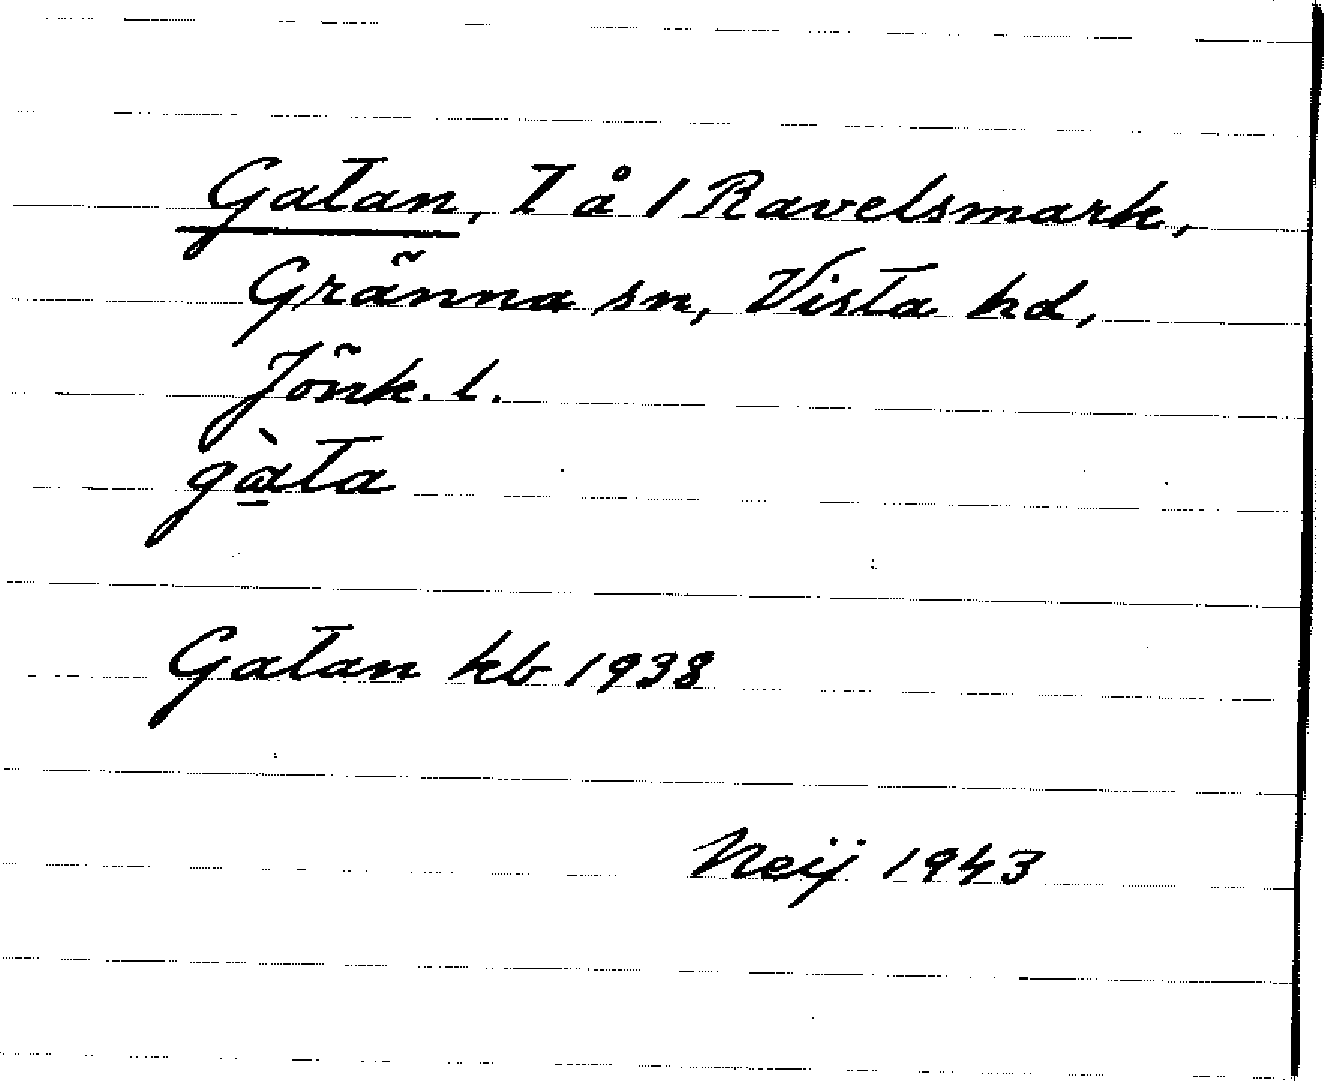 Gatan, l å 1 Ravelsmark,
Gränna sn, Vista hd,
Jönk. l.
gàta
Gatan kb 1938
Neij 1943